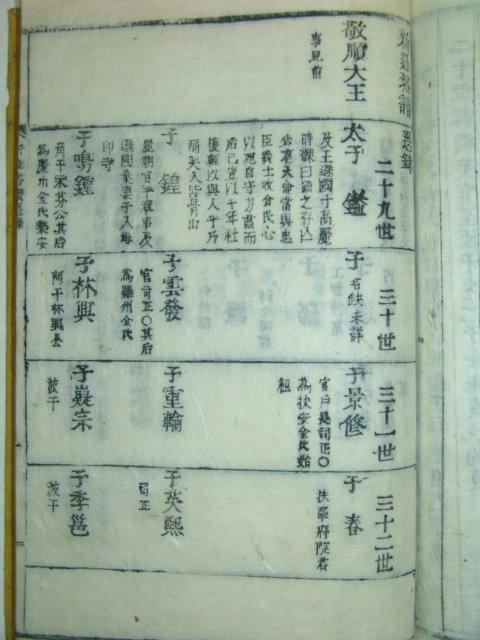 新羅璿譜遺錄
敬順大王
事見前
二十九世
太子 鎰
及王遜國于高麗
時諫曰國之存亡
必有天命當與忠
臣義士收合民心
以死自守力盡而
后已豈以千年社
稷輕以與人乎乃
痛哭入皆骨山
子 鍠
麗朝官平章事及
遜國棄妻子入海
印寺
子鳴鍾
商干宋芬公其后
為慶州金氏
三十世
子 名缺未詳
子雲發
官司正○其后
為羅州金氏
子林興
阿干林興
三十一世
子景修
官戶長司正○
為扶安金氏始
祖
子重輪
子嶷宗
波干
三十二世
子 春
扶寧府院君
子英熙
司正
子季邕
波干